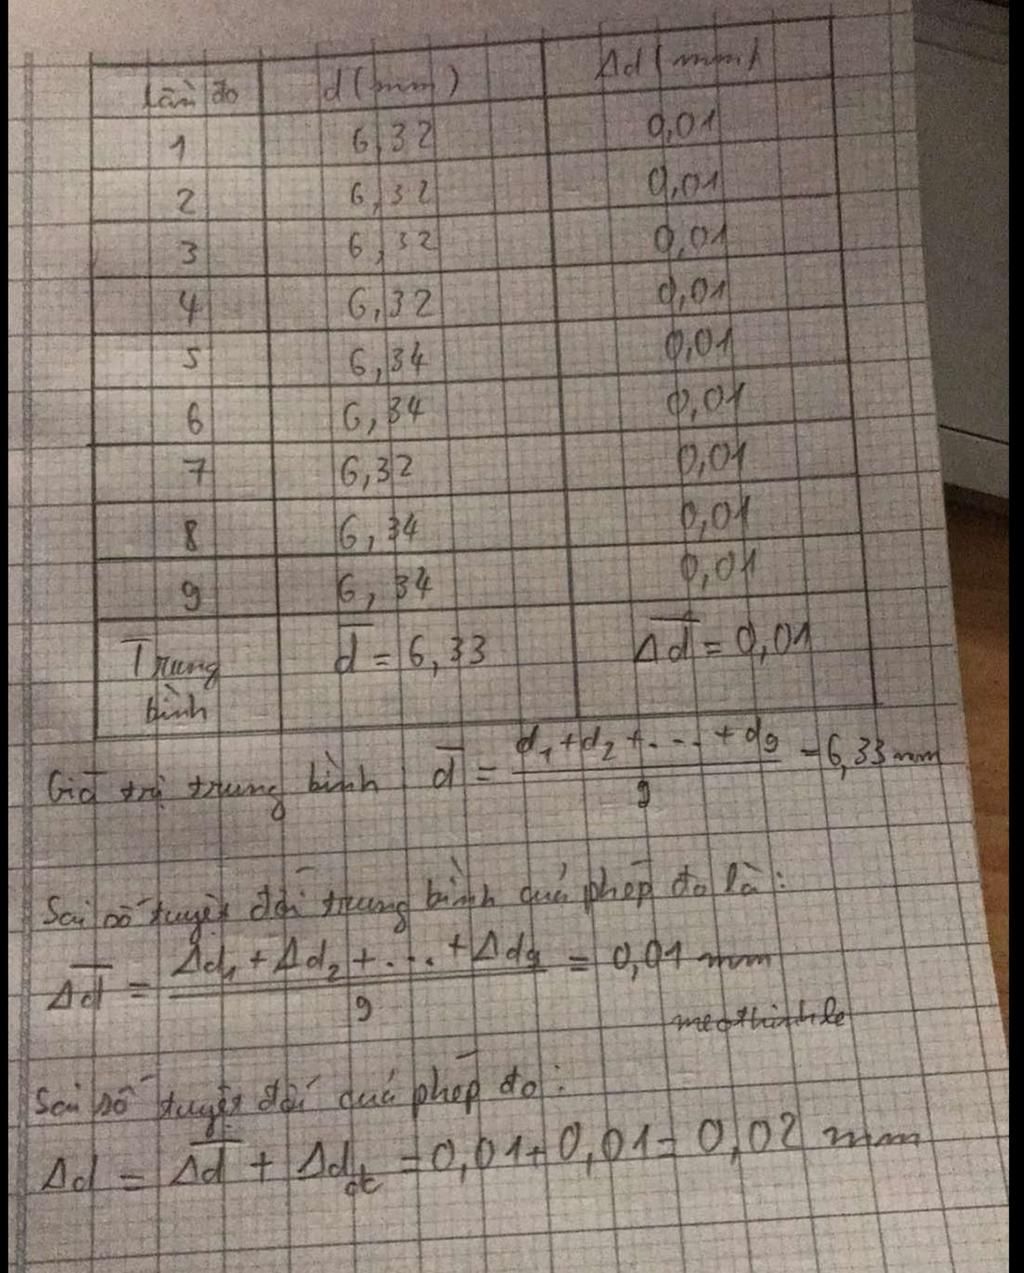 Lần đo d(mm) Δd(mm)
1 6,32 0,01
2 6,32 0,01
3 6,32 0,01
4 6,32 0,01
5 6,34 0,01
6 6,34 0,01
7 6,32 0,01
8 6,34 0,01
9 6,34 0,01
Trung d̅ = 6,33 Δd̅ = 0,01
bình
Giá trị trung bình d̅ = (d₁ + d₂ + ... + d₉)/9 = 6,33 mm
Sai số tuyệt đối trung bình quá phép đo là:
Δd̅ = (Δd₁ + Δd₂ + ... + Δd₉)/9 = 0,01 mm
meothinhle
Sai số tuyệt đối quá phép đo:
Δd = Δd̅ + Δd_dc = 0,01 + 0,01 = 0,02 mm